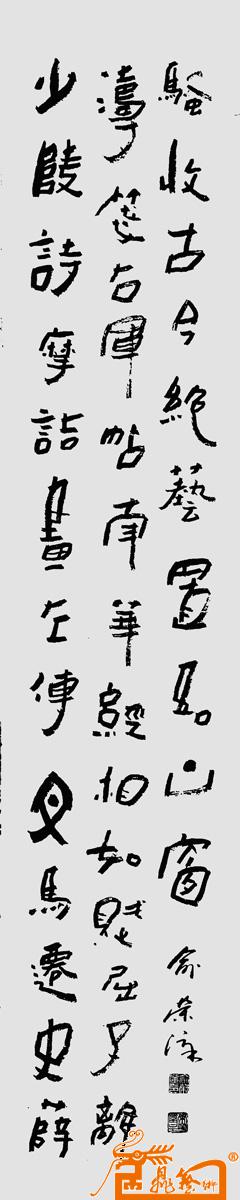 少陵詩摩詰畫左傳文馬遷史薛
濤箋右軍帖南華經相如賦屈子離
騷收古今絕藝置山窗